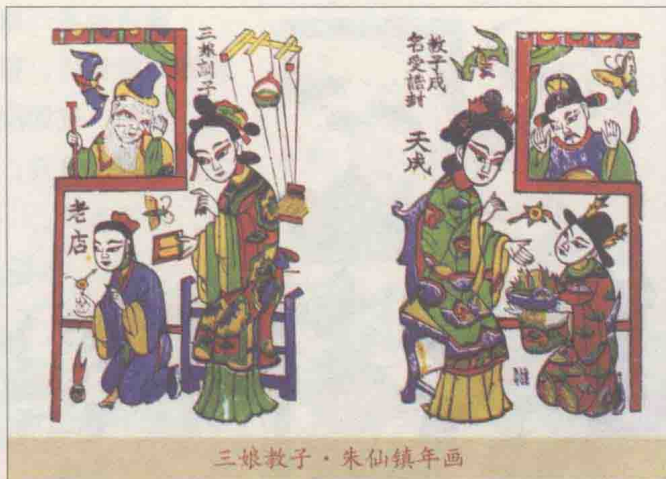 三娘訓子
老店
教子成
名受誥封
天成
三娘教子·朱仙镇年画